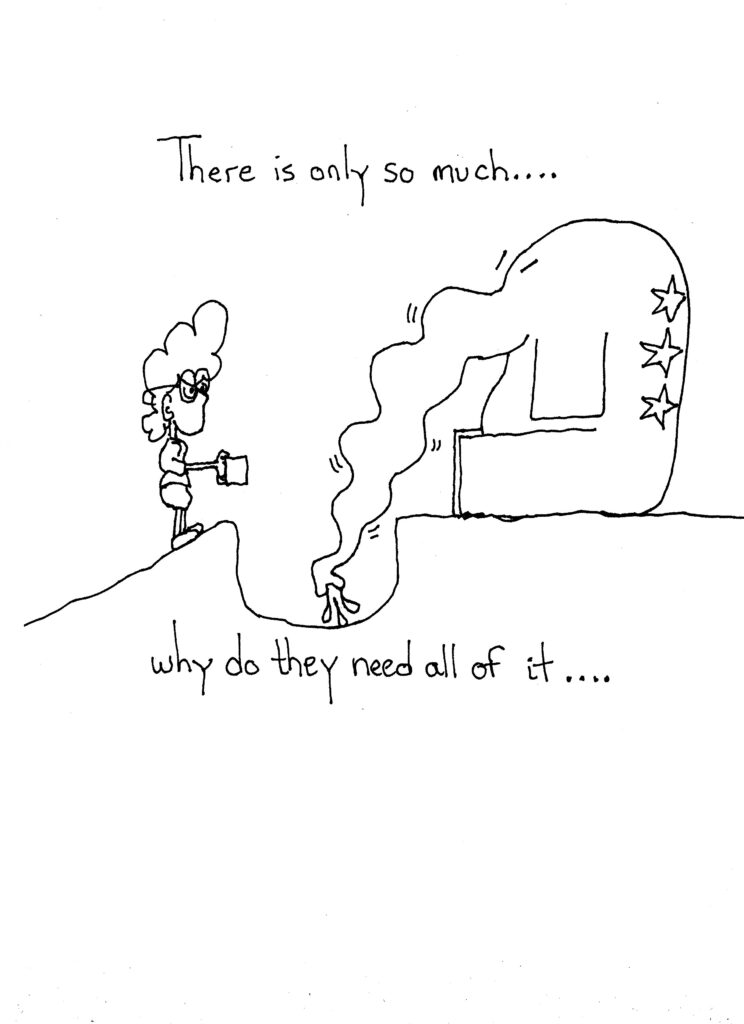 There is only so much....
why do they need all of it....